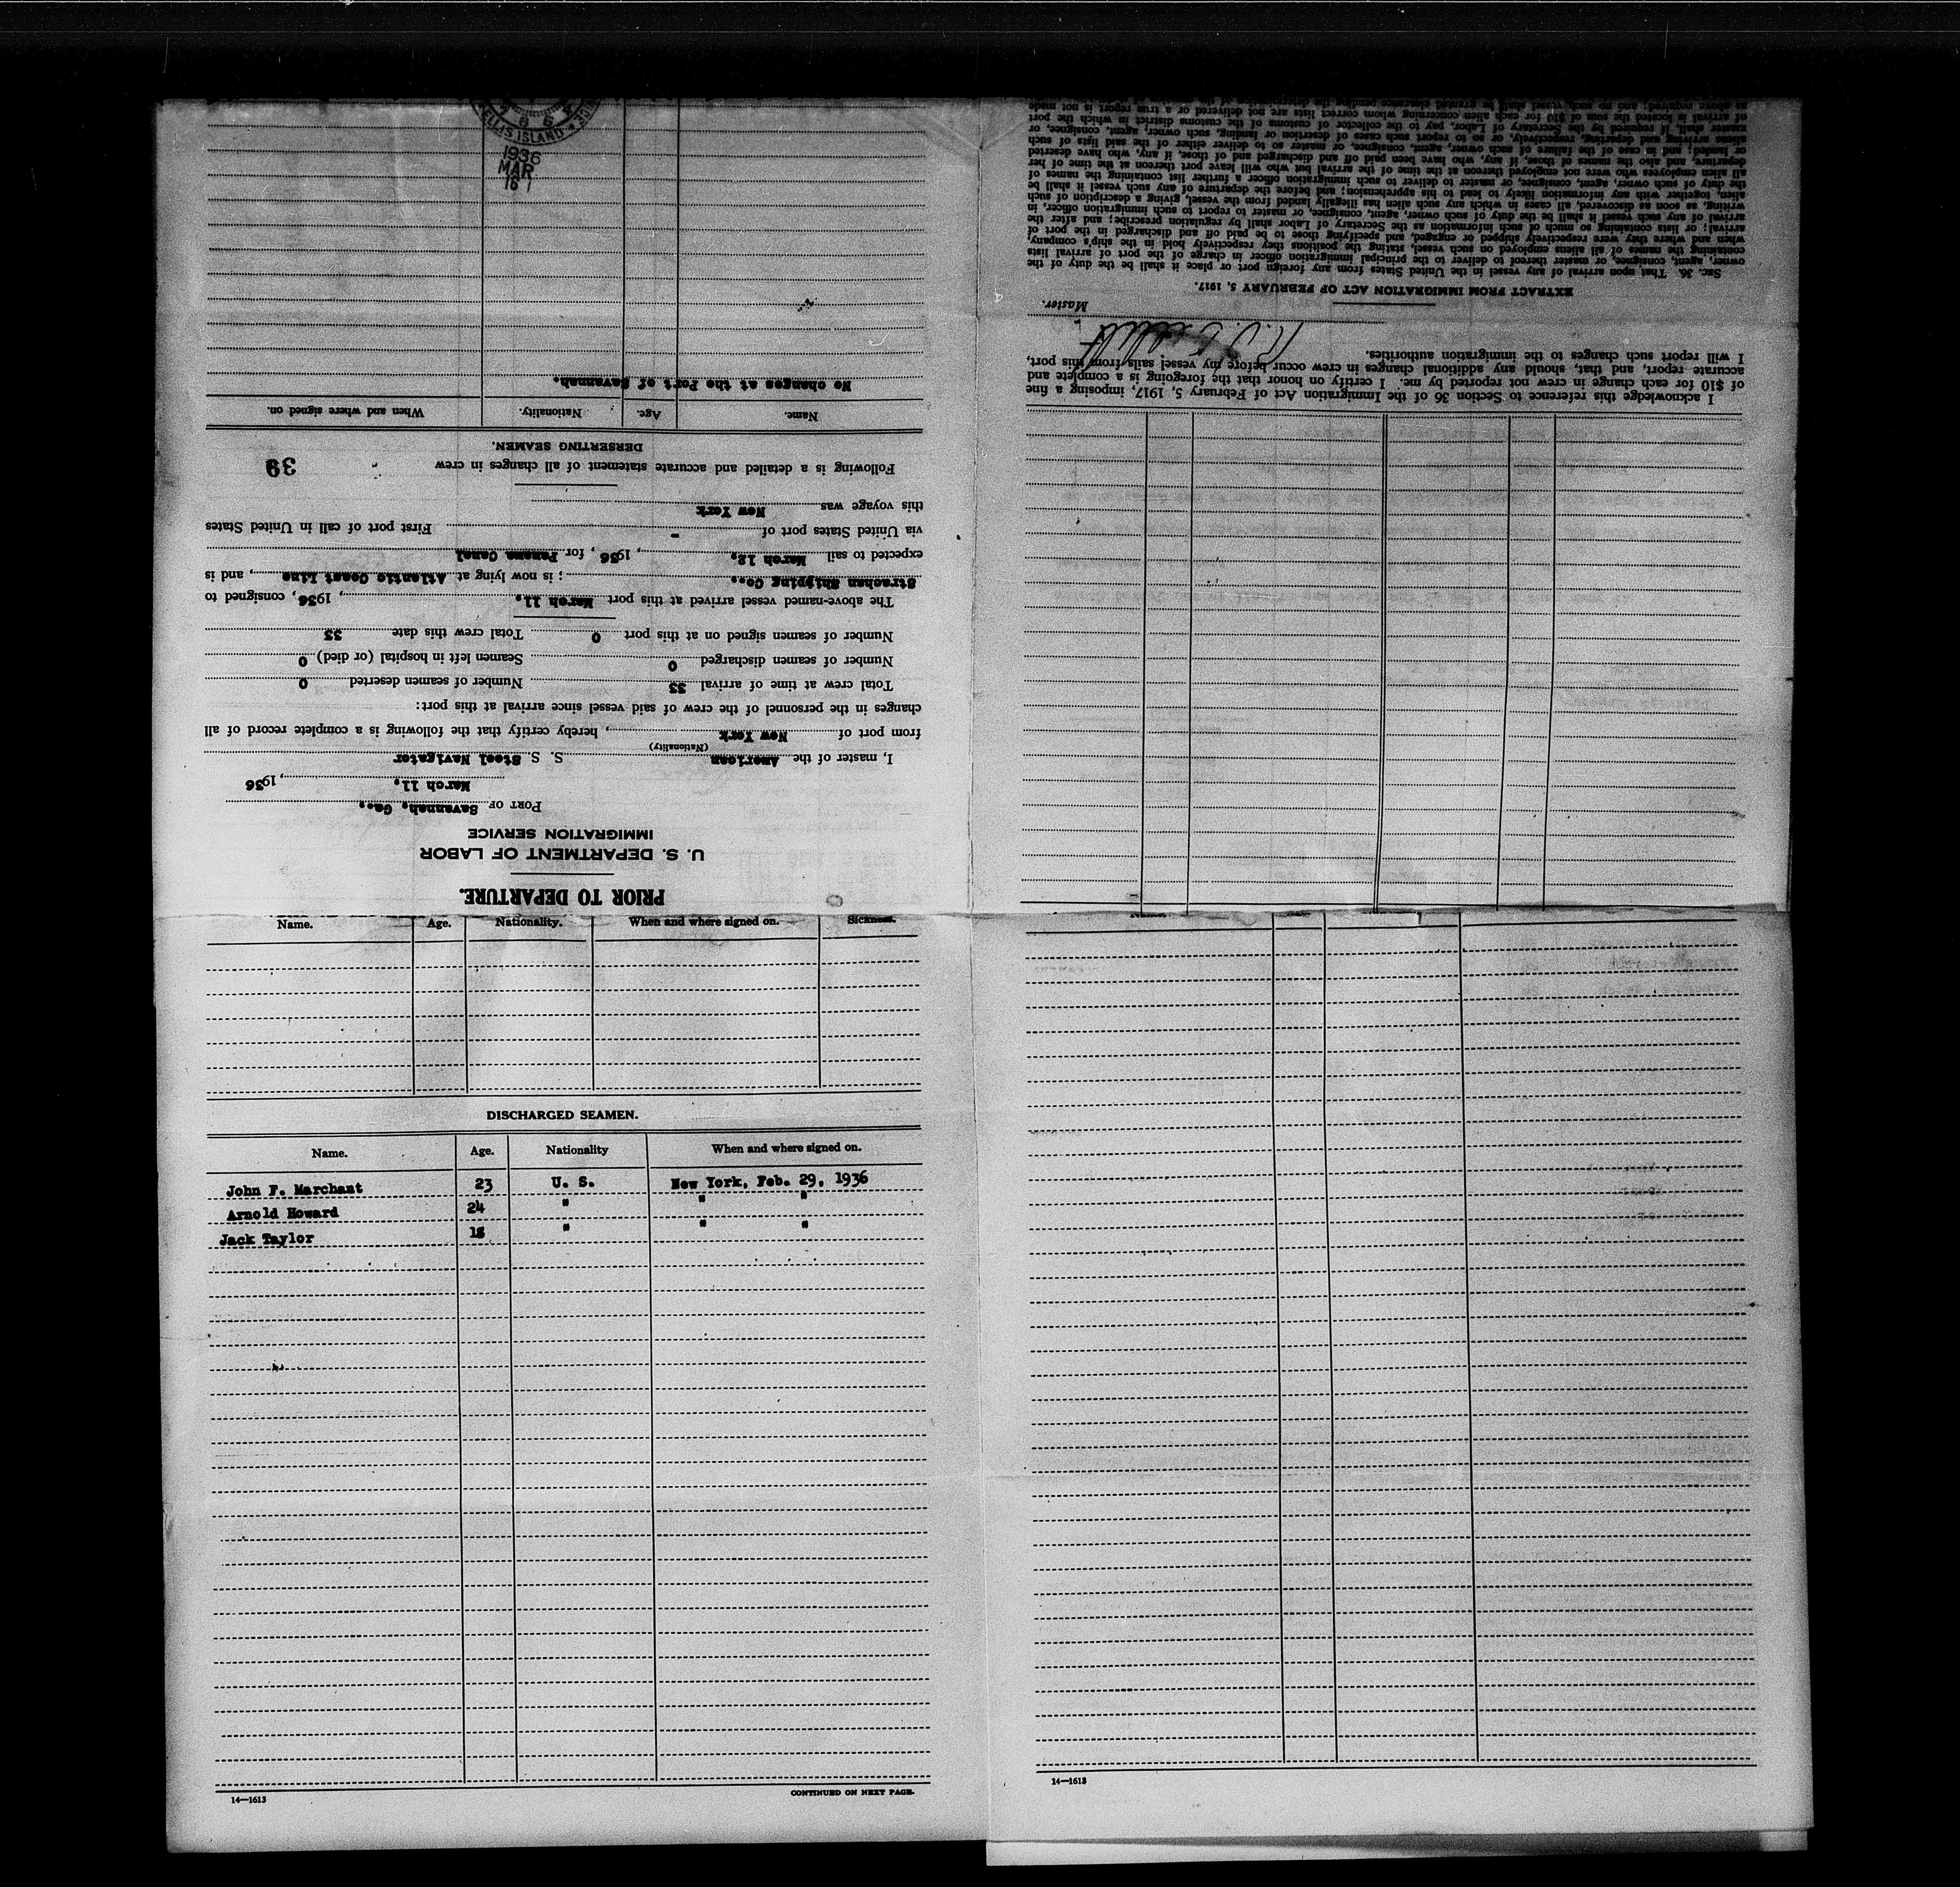 PRIOR TO DEPARTURE.
U. S. DEPARTMENT OF LABOR
IMMIGRATION SERVICE
PORT OF Savannah, Ga.,
March 11, , 1936
I, master of the American S. S. Steel Navigator
(Nationality)
from port of New York , hereby certify that the following is a complete record of all
changes in the personnel of the crew of said vessel since arrival at this port:
Total crew at time of arrival 33 Number of seamen deserted 0
Number of seamen discharged 0 Seamen left in hospital (or died) 0
Number of seamen signed on at this port 0 Total crew this date 33
The above-named vessel arrived at this port March 11, , 1936, consigned to
Strachan Shipping Co., ; is now lying at Atlantic Coast Line , and is
expected to sail March 12, , 1936, for Panama Canal
via United States port of - First port of call in United States
this voyage was New York
Following is a detailed and accurate statement of all changes in crew 39
DERSERTING SEAMEN.
Name. Age. Nationality. When and where signed on.
No changes at the Port of Savannah.
1936
MAR
16
ELLIS ISLAND
I acknowledge this reference to Section 36 of the Immigration Act of February 5, 1917, imposing a fine
of $10 for each change in crew not reported by me. I certify on honor that the foregoing is a complete and
accurate report, and that, should any additional changes in crew occur before my vessel sails from this port,
I will report such changes to the immigration authorities.
Master.
EXTRACT FROM IMMIGRATION ACT OF FEBRUARY 5, 1917.
Sec. 36. That upon arrival of any vessel in the United States from any foreign port or place it shall be the duty of the
owner, agent, consignee, or master thereof to deliver to the principal immigration officer in charge of the port of arrival lists
containing the names of all aliens employed on such vessel, stating the positions they respectively hold in the ship's company,
when and where they were respectively shipped or engaged, and specifying those to be paid off and discharged in the port of
arrival; or lists containing so much of such information as the Secretary of Labor shall by regulation prescribe; and after the
arrival of any such vessel it shall be the duty of such owner, agent, consignee, or master to report to such immigration officer, in
writing, as soon as discovered, all cases in which any such alien has illegally landed from the vessel, giving a description of such
alien, together with any information likely to lead to his apprehension; and before the departure of any such vessel it shall be
the duty of such owner, agent, consignee, or master to deliver to such immigration officer a further list containing the names of
all alien employees who were not employed thereon at the time of the arrival but who will leave port thereon at the time of her
departure, and also the names of those, if any, who have been paid off and discharged and of those, if any, who have deserted
or landed; and in case of the failure of such owner, agent, consignee, or master so to deliver either of the said lists of such
aliens arriving and departing, respectively, or so to report such cases of desertion or landing, such owner, agent, consignee, or
master shall, if required by the Secretary of Labor, pay to the collector of customs of the customs district in which the port
of arrival is located the sum of $10 for each alien concerning whom correct lists are not delivered or a true report is not made
as above required; and no such vessel shall be granted clearance pending the determination of the
Name. Age. Nationality. When and where signed on. Sickness.
DISCHARGED SEAMEN.
Name. Age. Nationality When and where signed on.
John F. Marchant 23 U. S. New York, Feb. 29, 1936
Arnold Howard 24 " " "
Jack Taylor 18 " " "
14—1613 CONTINUED ON NEXT PAGE.
14—1613